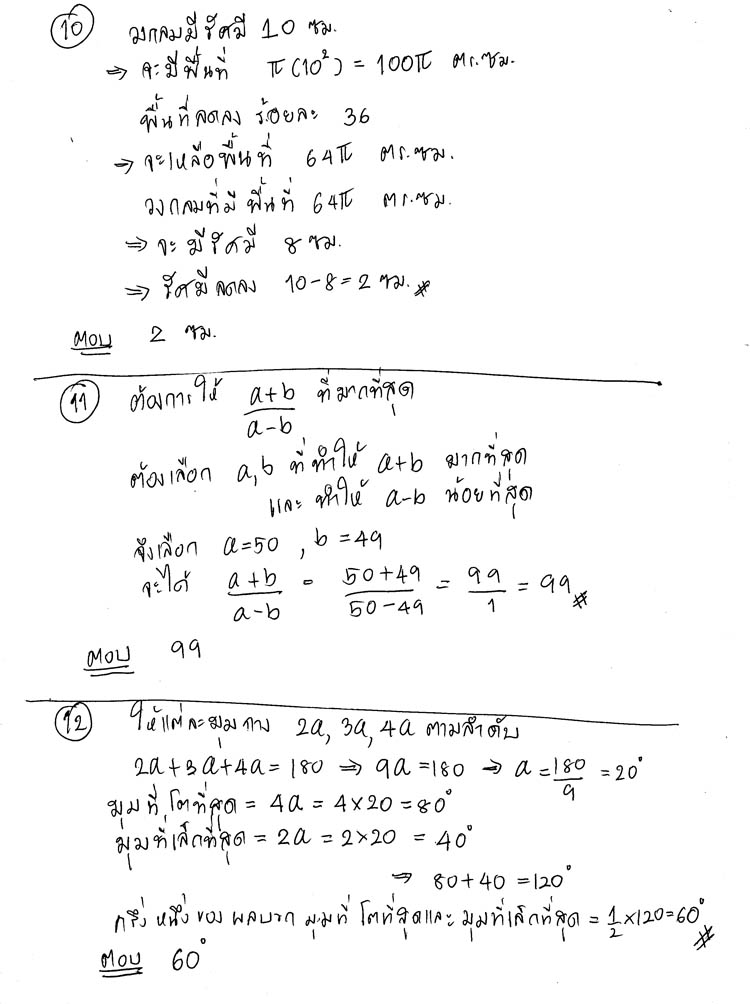 (10) วงกลมมีรัศมี 10 ซม.
⇒ จะมีพื้นที่ π(10²) = 100π ตร.ซม.
พื้นที่ลดลง ร้อยละ 36
→ จะเหลือพื้นที่ 64π ตร.ซม.
วงกลมที่มีพื้นที่ 64π ตร.ซม.
⇒ จะมีรัศมี 8 ซม.
⇒ รัศมีลดลง 10-8=2 ซม. #
ตอบ 2 ซม.
(11) ต้องการให้ (a+b)/(a-b) ที่มากที่สุด
ต้องเลือก a,b ที่ทำให้ a+b มากที่สุด
และ ทำให้ a-b น้อยที่สุด
จึงเลือก a=50 , b=49
จะได้ (a+b)/(a-b) = (50+49)/(50-49) = 99/1 = 99 #
ตอบ 99
(12) ให้แต่ละมุมกาง 2a, 3a, 4a ตามลำดับ
2a+3a+4a=180 ⇒ 9a=180 ⇒ a=180/9=20°
มุมที่โตที่สุด = 4a = 4×20=80°
มุมที่เล็กที่สุด = 2a = 2×20 = 40°
⇒ 80+40=120°
ครึ่งหนึ่งของผลบวกมุมที่โตที่สุดและมุมที่เล็กที่สุด = 1/2×120=60° #
ตอบ 60°